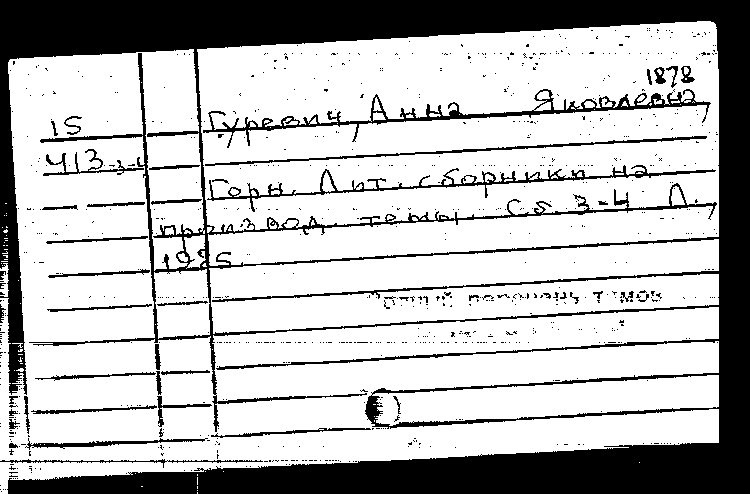 1878
15 Гуревич, Анна Яковлевна,
Ч13 3-4
Горн. Лит. сборники на
производ. темы. Сб. 3-4 Л.,
1925.